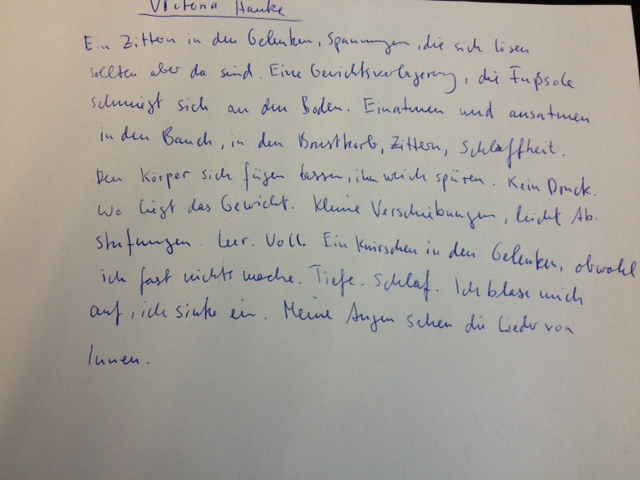 Victoria Hauke
Ein Zittern in den Gelenken, Spannungen, die sich lösen
sollten aber da sind. Eine Gewichtsverlagerung, die Fußsole
schmiegt sich an den Boden. Einatmen und ausatmen
in den Bauch, in den Brustkorb, Zittern, Schlaffheit.
Den Körper sich fügen lassen, ihn weich spüren. Kein Druck.
Wo liegt das Gewicht. Kleine Verschiebungen, leicht Ab-
stufungen. Leer. Voll. Ein Knirschen in den Gelenken, obwohl
ich fast nichts mache. Tiefe. Schlaf. Ich blase mich
auf, ich sinke ein. Meine Augen sehen die Lieder von
Innen.